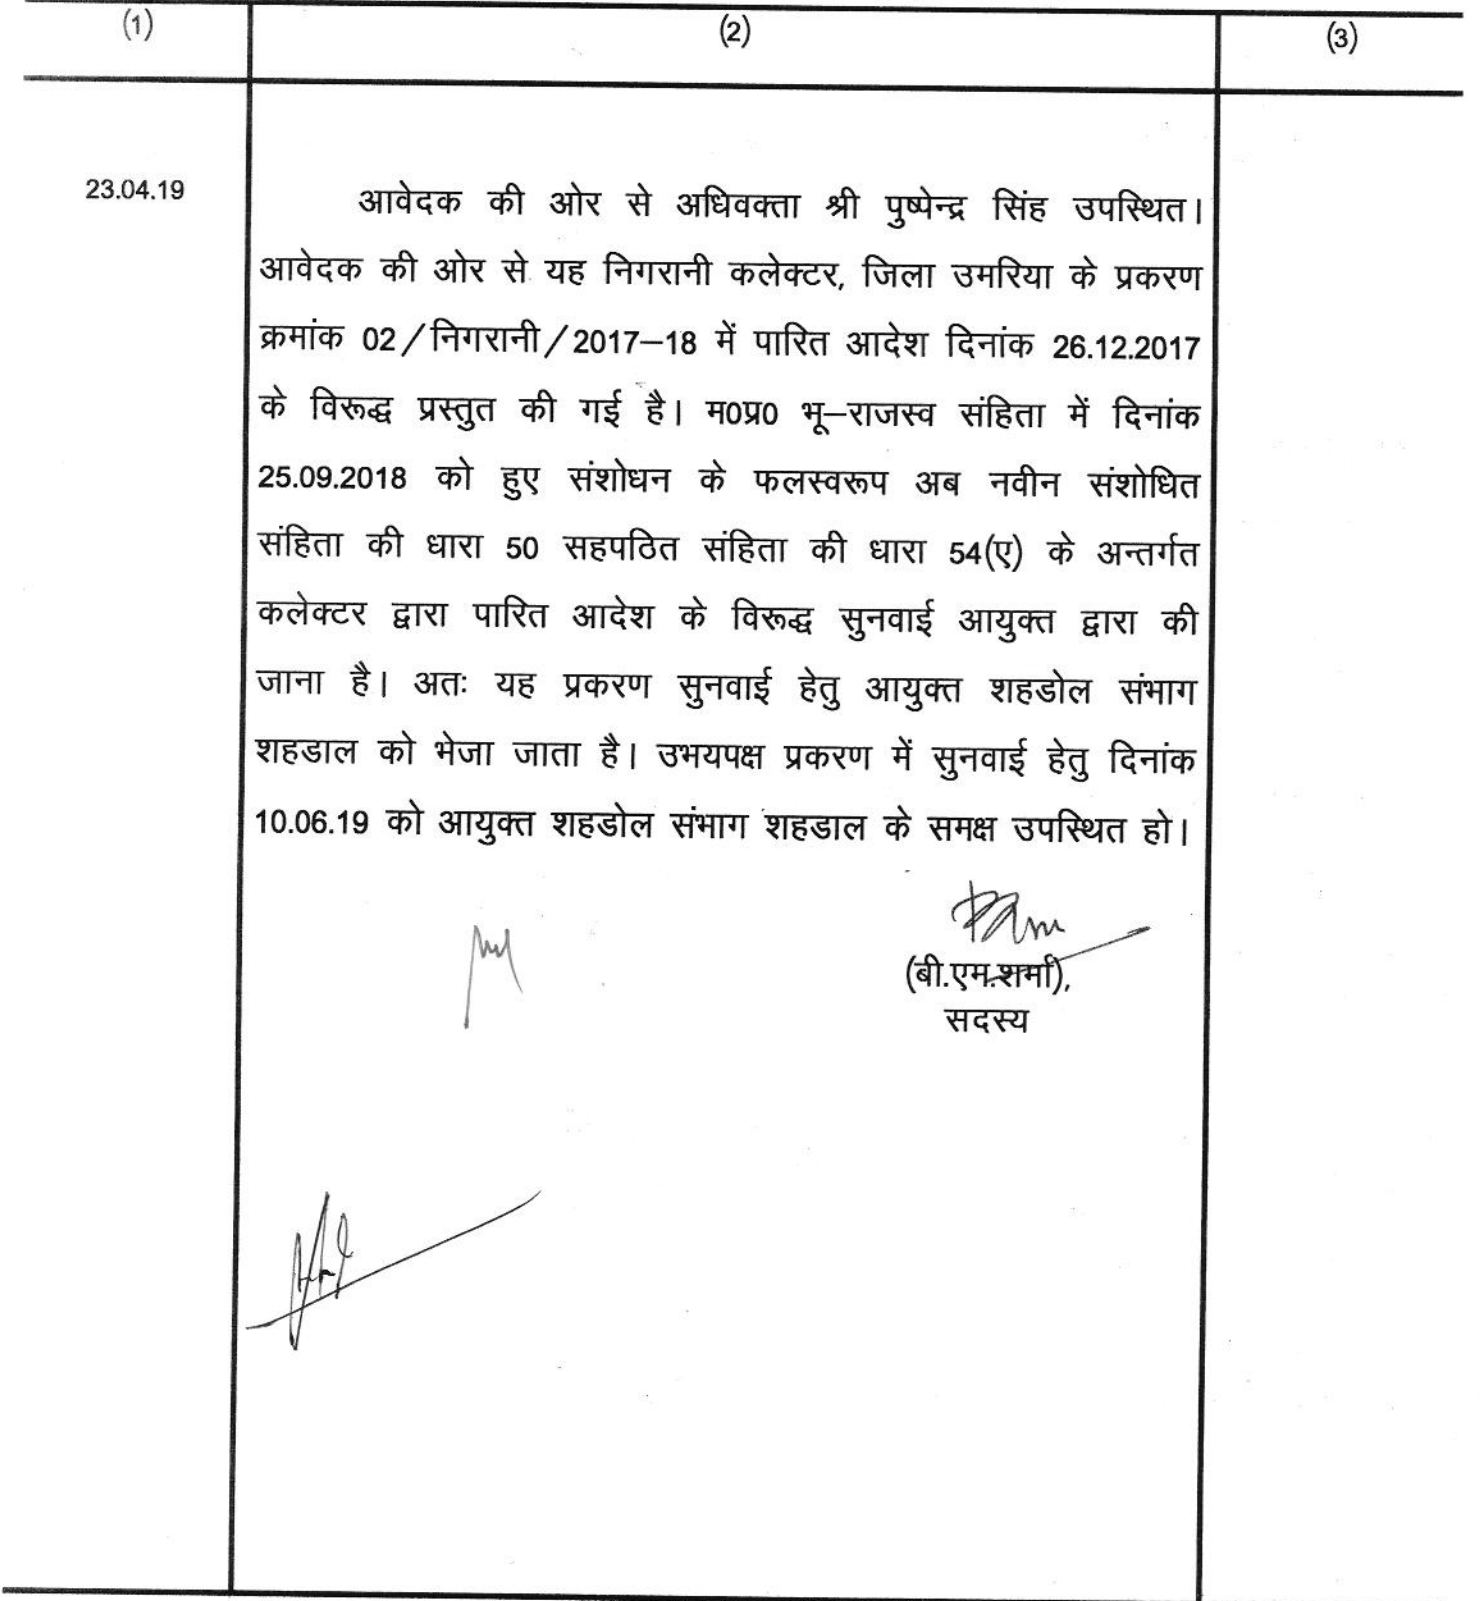 (1) (2) (3)
23.04.19 आवेदक की ओर से अधिवक्ता श्री पुष्पेन्द्र सिंह उपस्थित।
आवेदक की ओर से यह निगरानी कलेक्टर, जिला उमरिया के प्रकरण
क्रमांक 02/निगरानी/2017–18 में पारित आदेश दिनांक 26.12.2017
के विरूद्ध प्रस्तुत की गई है। म0प्र0 भू–राजस्व संहिता में दिनांक
25.09.2018 को हुए संशोधन के फलस्वरूप अब नवीन संशोधित
संहिता की धारा 50 सहपठित संहिता की धारा 54(ए) के अन्तर्गत
कलेक्टर द्वारा पारित आदेश के विरूद्ध सुनवाई आयुक्त द्वारा की
जाना है। अतः यह प्रकरण सुनवाई हेतु आयुक्त शहडोल संभाग
शहडाल को भेजा जाता है। उभयपक्ष प्रकरण में सुनवाई हेतु दिनांक
10.06.19 को आयुक्त शहडोल संभाग शहडाल के समक्ष उपस्थित हो।
(बी.एम.शर्मा),
सदस्य